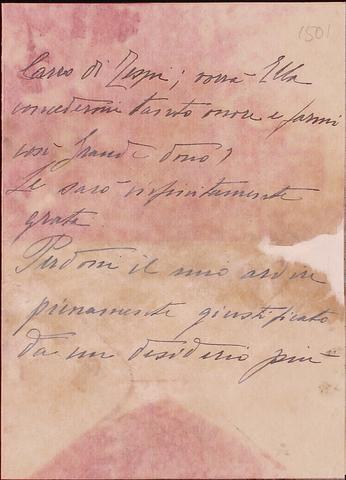 1501
Carro di Tespi; vorrà Ella
concedermi tanto onore e farmi
così grande dono?
Le sarò infinitamente
grata
Perdoni il mio ardire
pienamente giustificato
da un desiderio più